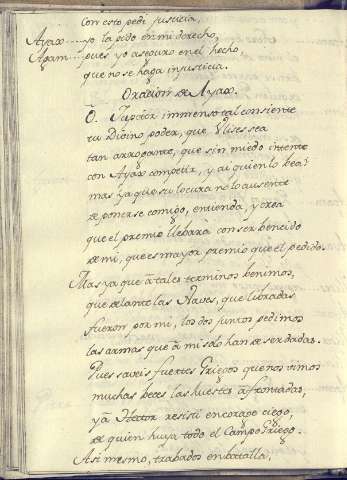 Con esto pedi justicia,
Ayax.....yo la pido en mi derecho,
Agam....pues yo aseguro en el hecho,
que no se haga injusticia.
Oracion de Ayax.
O. Jupiter immenso tal consiente
tu Divino poder, que Ulises sea
tan arrogante, que sin miedo intente
con Ayax competir, y ai quien lo bea?
mas ya que su locura no lo ausente
de ponerse comigo, entienda, y crea
que el premio llebarà con ser bencido
de mi, que es mayor premio que el pedido.
Mas ya que à tales terminos benimos,
que delante las Naves, que libradas
fueron por mi, los dos juntos pedimos
las armas que à mi solo han de ser dadas.
Pues saveis fuertes Griegos que nos vimos
muchas beces las huestes afrontadas,
yà Hector resisti en corage ciego,
de quien huya todo el Campo Griego.
Asi mesmo, trabados en batalla,